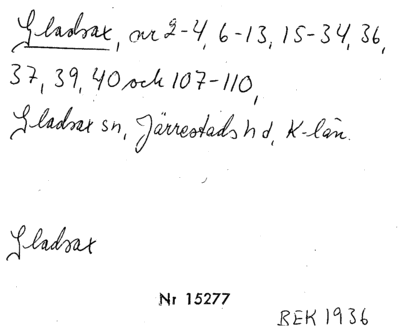 Gladsax, nr 2-4, 6-13, 15-34, 36,
37, 39, 40 och 107-110,
Gladsax sn, Järrestads hd, K-län.
Gladsax
Nr 15277
BEK 1936